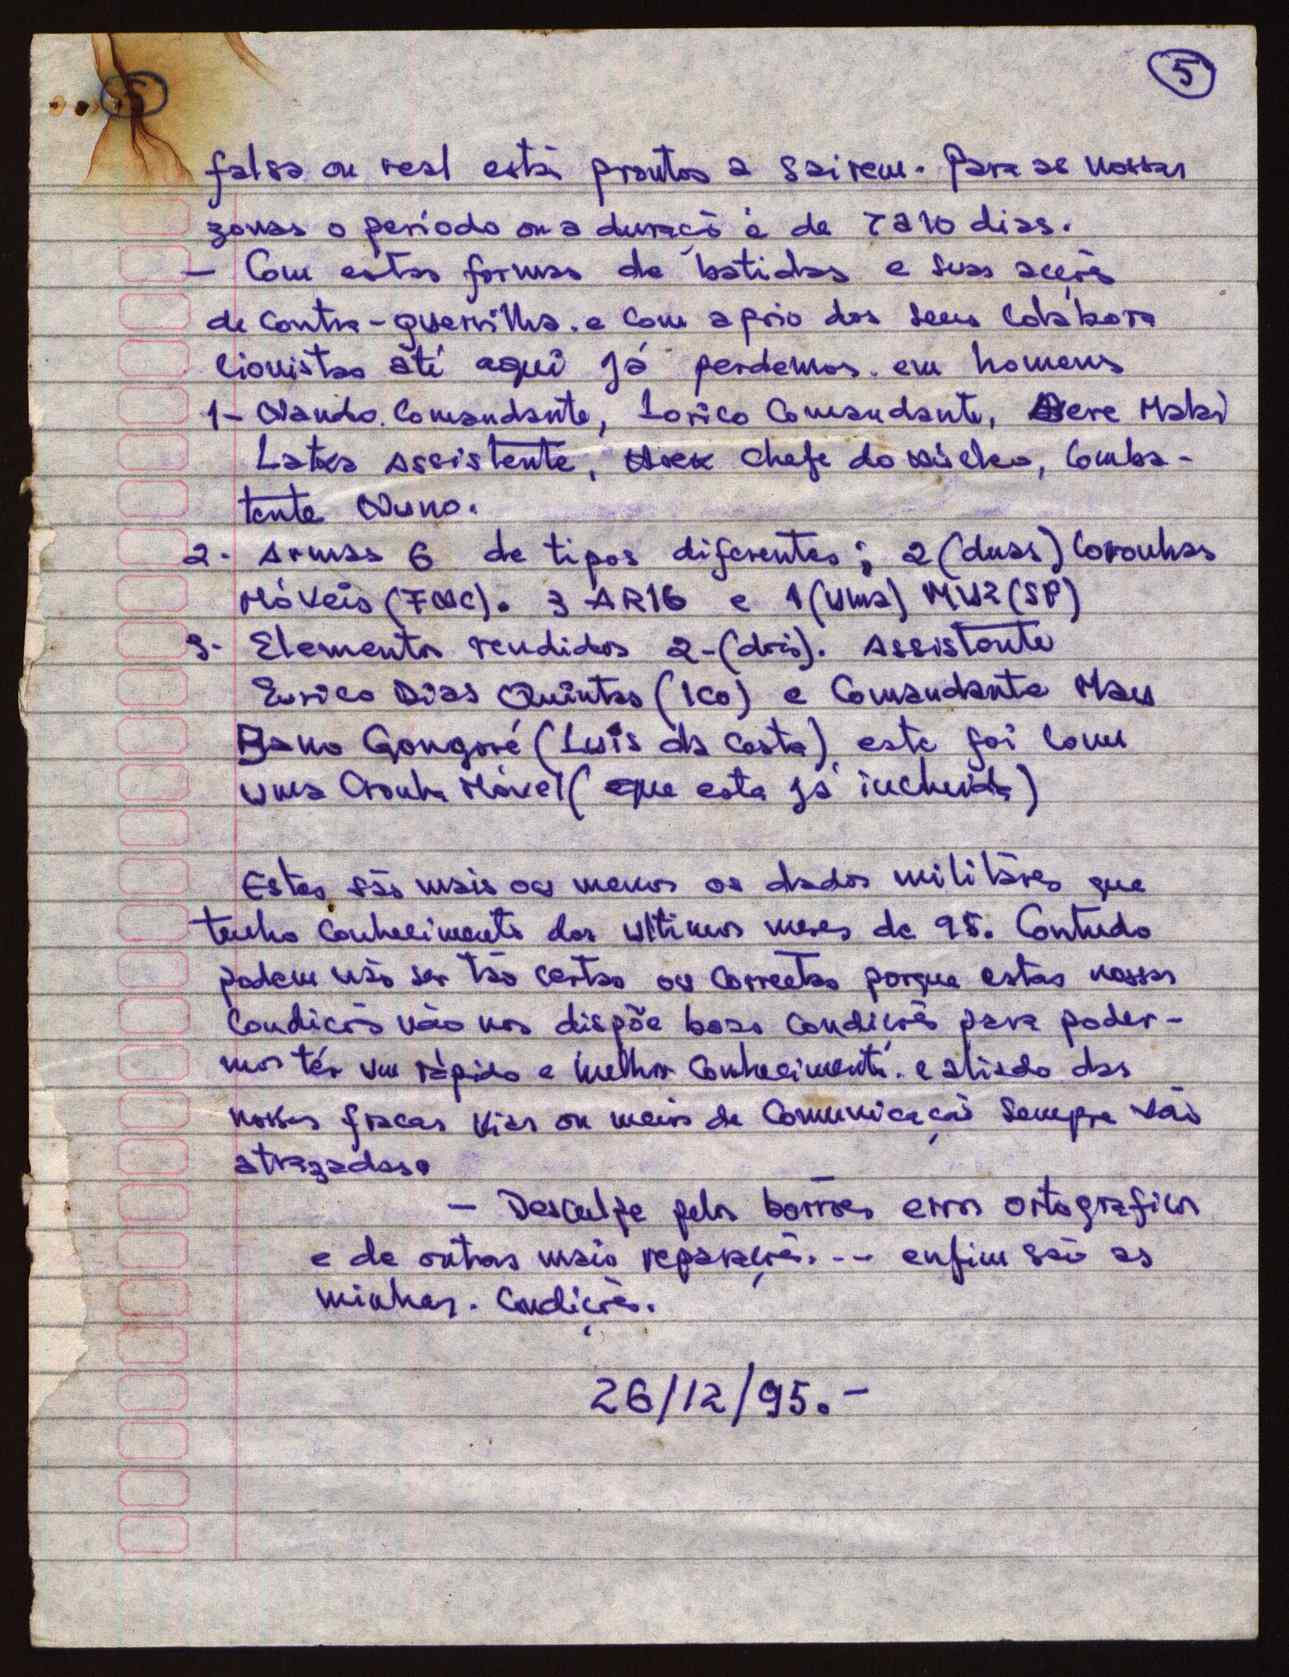 5 5
falsa ou real está prontos a sairem. Para as nossas
zonas o período ou a duraçõ é de 7 a 10 dias.
- Com estas formas de batidas e suas acçõs
de contra-guerrilha. e com apoio dos seus colábora
cionistas até aqui já perdemos. em homens
1- Nando. Comandante, Lorico Comandante, Bere Malai
Latxa Assistente, chefe do Núcleo, Comba-
tente Nuno.
2- Armas 6 de tipos diferentes; 2 (duas) Coronhas
Móveis (FNC). 3 AR16 e 1 (uma) MU2 (SP)
3- Elementos rendidos 2-(dois). Assistente
Eurico Dias Quintas (Ico) e Comandante Mau
Bano Gongoré (Luis da Costa) este foi com
uma Cronha Móvel (que esta já incluida)
Estes são mais ou menos os dados militáres que
tenho conhecimento dos ultimos meses de 95. Contudo
podem não ser tão certas ou correctas porque estas nossas
Condicõs não nos dispõe boas condiçõs para poder-
mos tér um rápido e melhor conhecimento. e aliado das
nossas fracas vias ou meios de Comunicaçaõ sempre vão
atrazadas.
- Desculpe pelos borrões erros ortograficos
e de outras mais reparaçõs. -- enfim são as
minhas. Condiçõs.
26/12/95.-